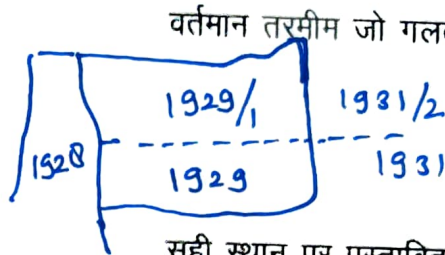 वर्तमान तरमीम जो
1929/1 1931/2
1928 1929 1931
सही स्थान पर